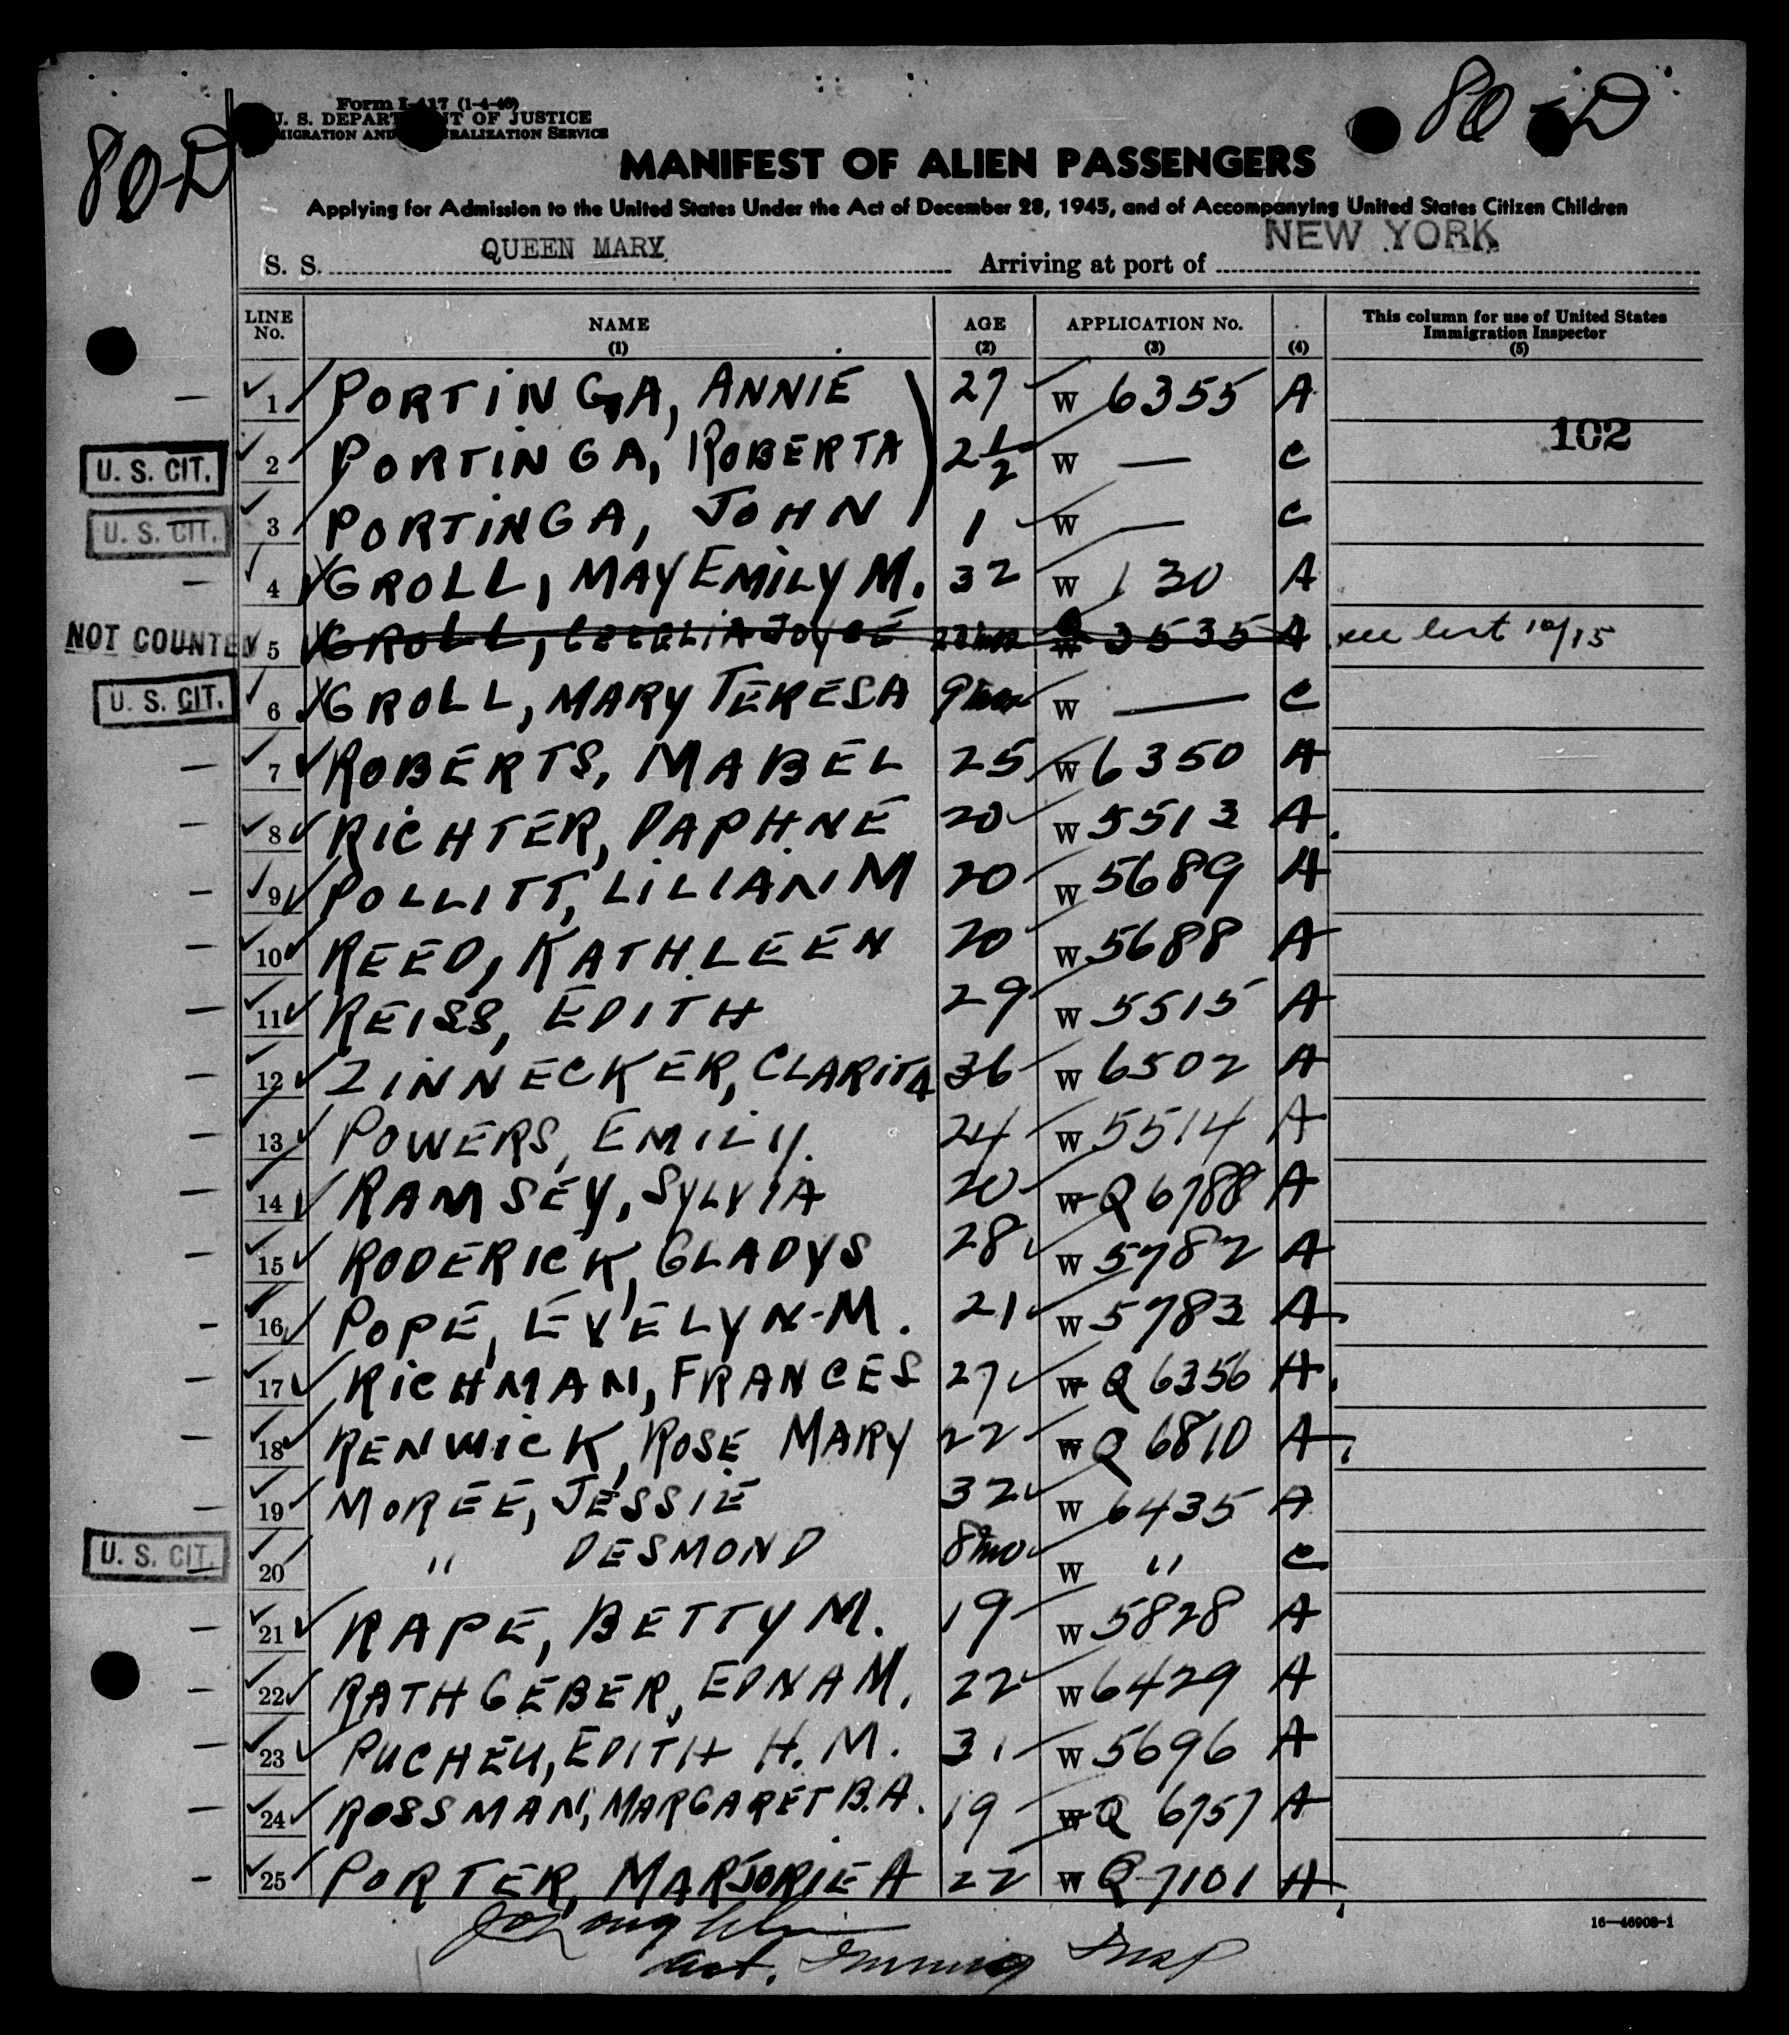 80-D
80-D
Form I-417 (1-4-46)
U. S. DEPARTMENT OF JUSTICE
IMMIGRATION AND NATURALIZATION SERVICE
MANIFEST OF ALIEN PASSENGERS
Applying for Admission to the United States Under the Act of December 28, 1945, and of Accompanying United States Citizen Children
S. S. QUEEN MARY Arriving at port of NEW YORK
LINE No. NAME (1) AGE (2) APPLICATION No. (3) (4) This column for use of United States Immigration Inspector (5)
1 PORTINGA, ANNIE 27 W 6355 A
102
U. S. CIT. 2 PORTINGA, ROBERTA 2 1/2 W — C
U. S. CIT. 3 PORTINGA, JOHN 1 W — C
4 GROLL, MAY EMILY M. 32 W 130 A
NOT COUNTED 5 GROLL, CECELIA JOYCE W 3535 A see list 10/15
U. S. CIT. 6 GROLL, MARY TERESA 9 mos W — C
7 ROBERTS, MABEL 25 W 6350 A
8 RICHTER, DAPHNE 20 W 5513 A
9 POLLITT, LILIAN M 20 W 5689 A
10 REED, KATHLEEN 20 W 5688 A
11 REISS, EDITH 29 W 5515 A
12 ZINNECKER, CLARITA 36 W 6502 A
13 POWERS, EMILY. 24 W 5514 A
14 RAMSEY, SYLVIA 20 W Q 6788 A
15 RODERICK, GLADYS 28 W 5782 A
16 POPE, EVELYN-M. 21 W 5783 A
17 RICHMAN, FRANCES 27 W Q 6356 A
18 RENWICK, ROSE MARY 22 W Q 6810 A
19 MOREE, JESSIE 32 W 6435 A
U. S. CIT. 20 " DESMOND 8 mo W " C
21 RAPE, BETTY M. 19 W 5828 A
22 RATHGEBER, EDNA M. 22 W 6429 A
23 PUCHEU, EDITH H. M. 31 W 5696 A
24 ROSSMAN, MARGARET B.A. 19 W Q 6757 A
25 PORTER, MARJORIE A 22 W Q 7101 A
16—46908-1
Act. Immig Insp